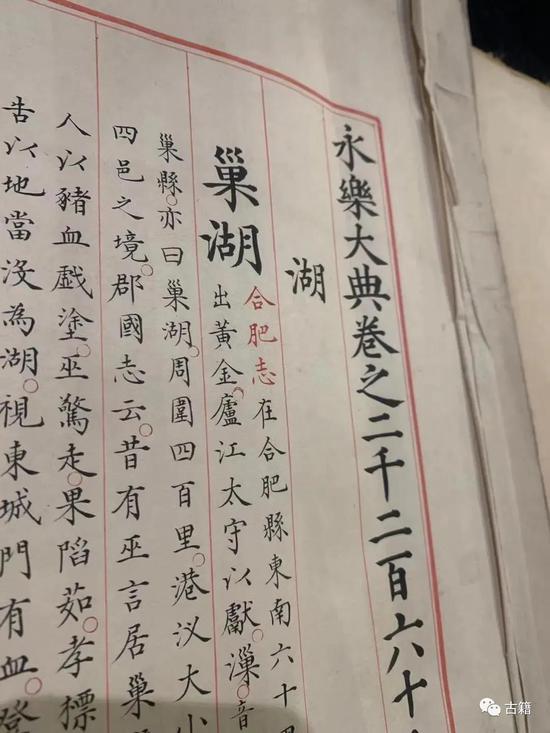 永樂大典卷之二千二百六十
湖
巢湖
合肥志在合肥縣東南六十
出黃金。廬江太守以獻。漅。音
巢縣。亦曰巢湖。周圍四百里。港汊大小
四邑之境。郡國志云。昔有巫言居巢
人以豬血戲塗。巫驚走。果陷茹。孝標
告以地當没為湖。視東城門有血。登
古籍